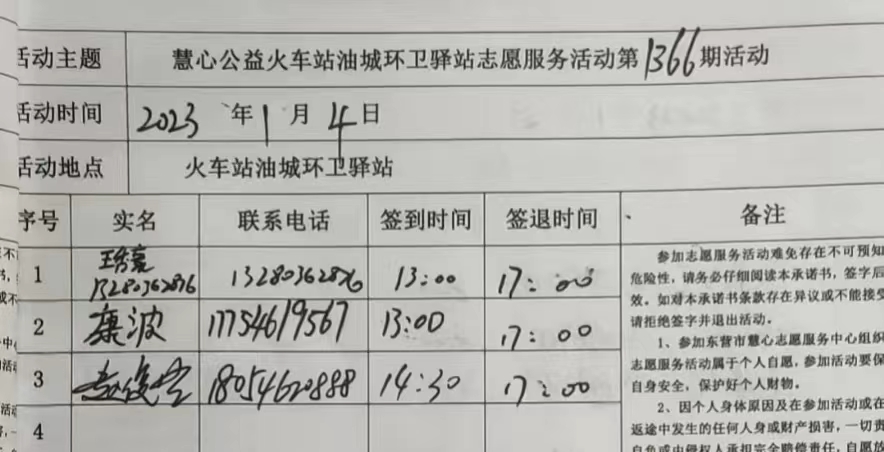 活动主题 慧心公益火车站油城环卫驿站志愿服务活动第1366期活动
活动时间 2023年1月4日
活动地点 火车站油城环卫驿站
序号 实名 联系电话 签到时间 签退时间 备注
1 13280362876 13280362876 13:00 17:00
2 康波 17754619567 13:00 17:00
3 18054620888 14:30 17:00
4
参加志愿服务活动难免存在不可预知
危险性，请务必仔细阅读本承诺书，签字后
效。如对本承诺书条款存在异议或不能接受
请拒绝签字并退出活动。
1、参加东营市慧心志愿服务中心组织
志愿服务活动属于个人自愿，参加活动要保
自身安全，保护好个人财物。
2、因个人身体原因及在参加活动或在
返途中发生的任何人身或财产损害，一切责
自负或由侵权人承担完全赔偿责任，自愿放